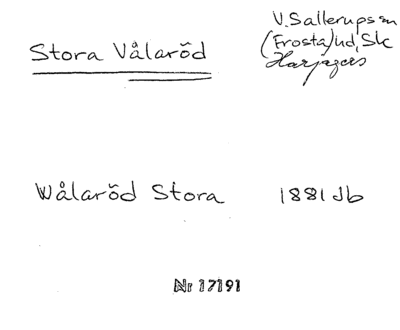 V. Sallerups sn
Stora Vålaröd
(Frosta) hd, Sk
Harjagers
Wålaröd Stora 1881 Jb
Nr 17191